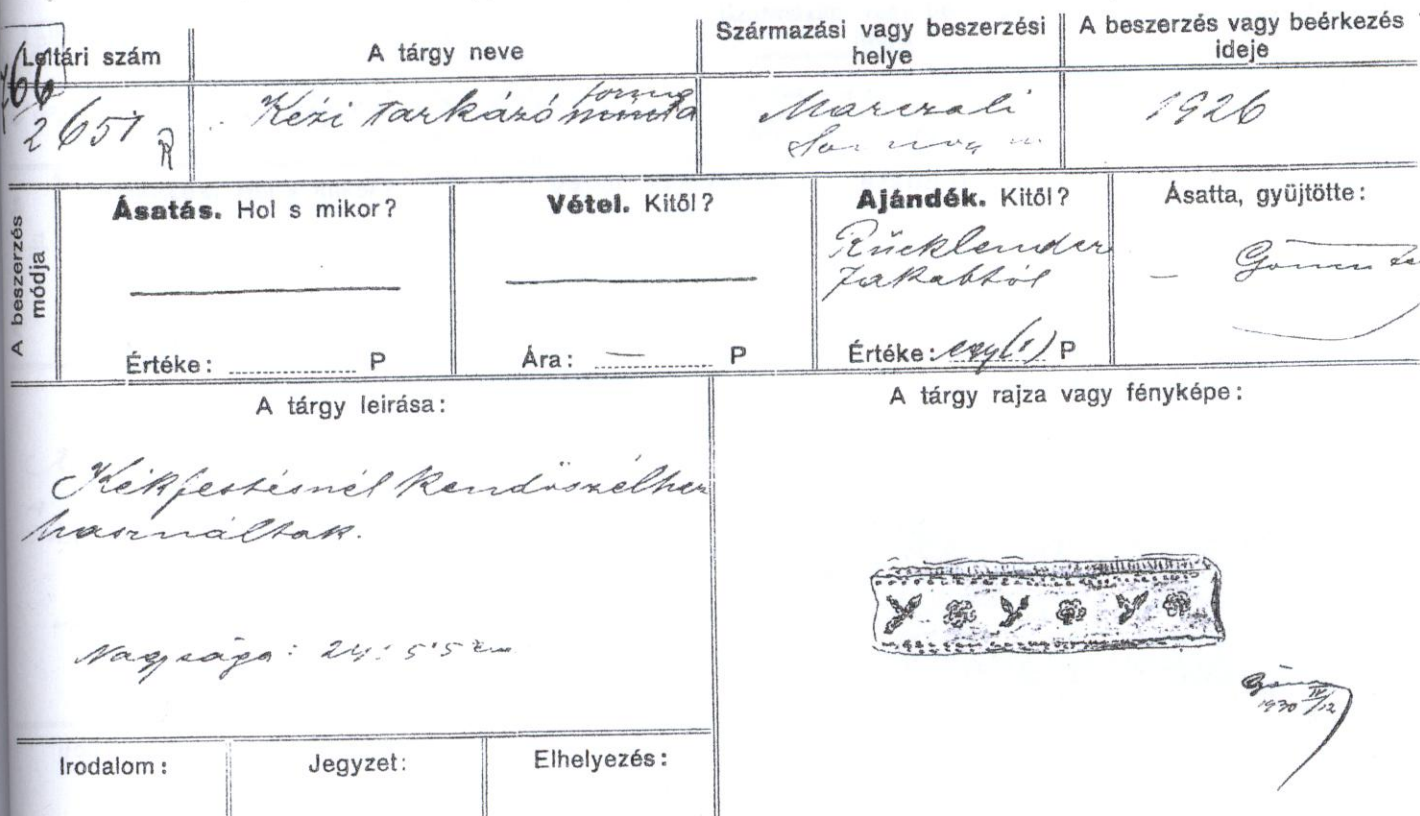 Leltári szám
A tárgy neve
Származási vagy beszerzési
helye
A beszerzés vagy beérkezés
ideje
66
2651 R
Kézi tarkázó minta
forma
Marczali
Somogy m.
1926
A beszerzés
módja
Ásatás. Hol s mikor?
Értéke: P
Vétel. Kitől?
Ára: — P
Ajándék. Kitől?
Rücklender
Jakabtól
Értéke: egy (1) P
Ásatta, gyüjtötte:
— Gönczi
A tárgy leirása:
Kékfestésnél kendőszélhez
használtak.
Nagysága: 24: 5'5 cm
A tárgy rajza vagy fényképe:
Gönczi
1930 IV/12
Irodalom:
Jegyzet:
Elhelyezés: